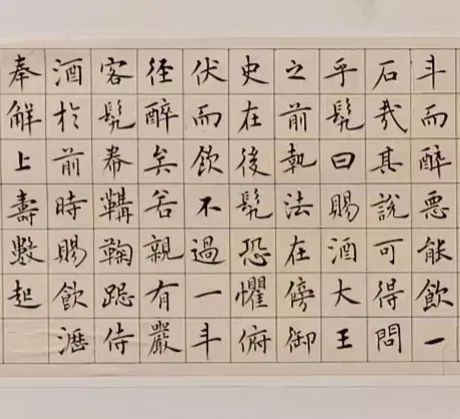 斗而醉惡能飲一
石哉其說可得問
乎髡曰賜酒大王
之前執法在傍御
史在後髡恐懼俯
伏而飲不過一斗
徑醉矣若親有嚴
客髡帣鞲鞠跽侍
酒於前時賜飲瀝
奉解上壽數起